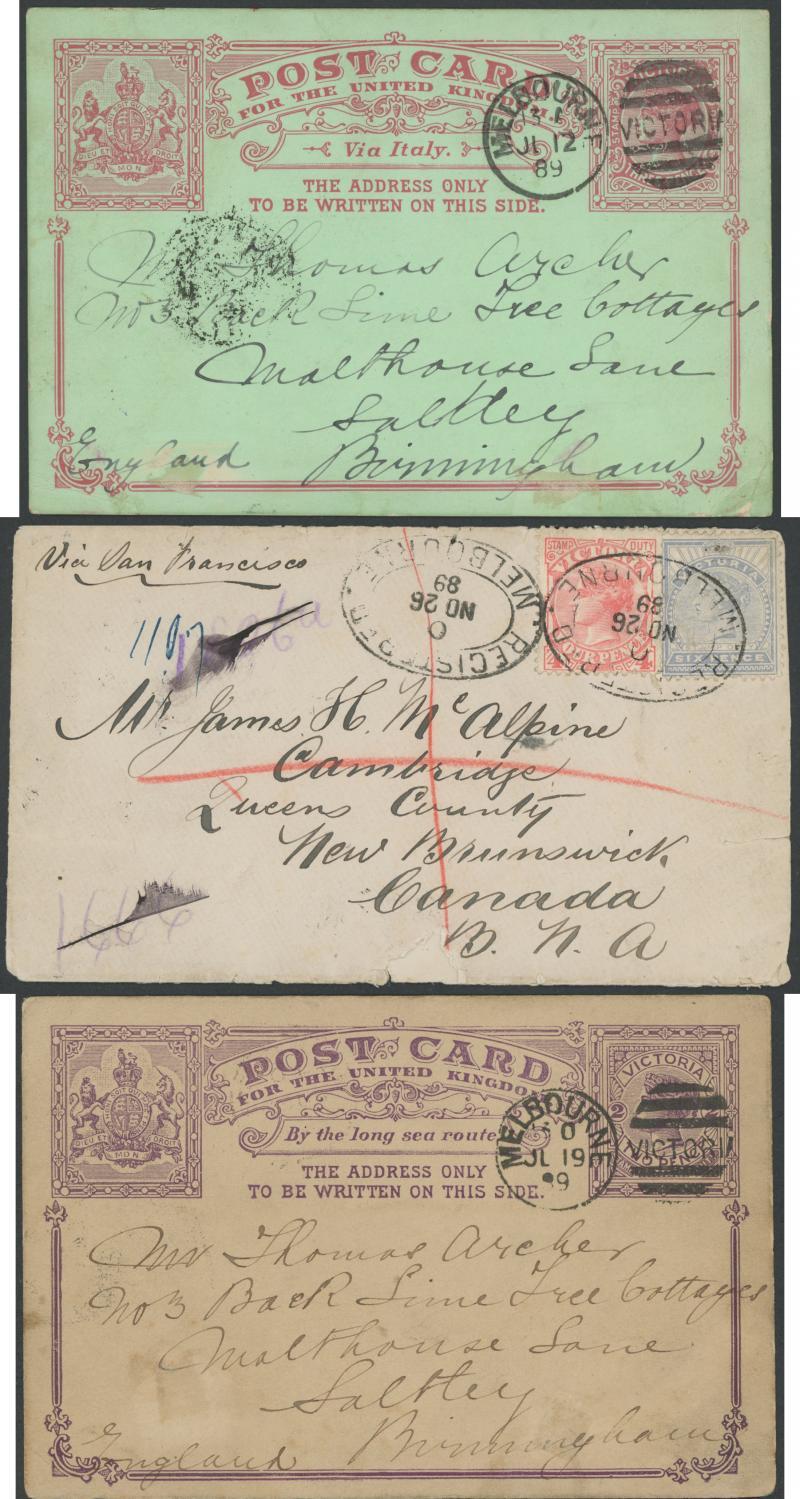 POST CARD
FOR THE UNITED KINGDO
Via Italy.
THE ADDRESS ONLY
TO BE WRITTEN ON THIS SIDE.
DIEU ET MON DROIT
MELBOURNE
JL 12
89
VICTORIA
VICTORIA
Mr Thomas Archer
No 3 Back Lime Tree Cottages
Malthouse Lane
Saltley
Birmingham
England
Via San Francisco
1107
1666
REGISTERED MELBOURNE
O
NO 26
89
STAMP DUTY
VICTORIA
FOUR PENCE
REGISTERED MELBOURNE
O
NO 26
89
VICTORIA
SIX PENCE
Mr James H. McAlpine
Cambridge
Queens County
New Brunswick
Canada
B. N. A
POST CARD
FOR THE UNITED KINGDO
By the long sea route
THE ADDRESS ONLY
TO BE WRITTEN ON THIS SIDE.
DIEU ET MON DROIT
MELBOURNE
JL 19
89
VICTORIA
2
TWO PENCE
VICTORIA
Mr Thomas Archer
No 3 Back Lime Tree Cottages
Malthouse Lane
Saltley
Birmingham
England